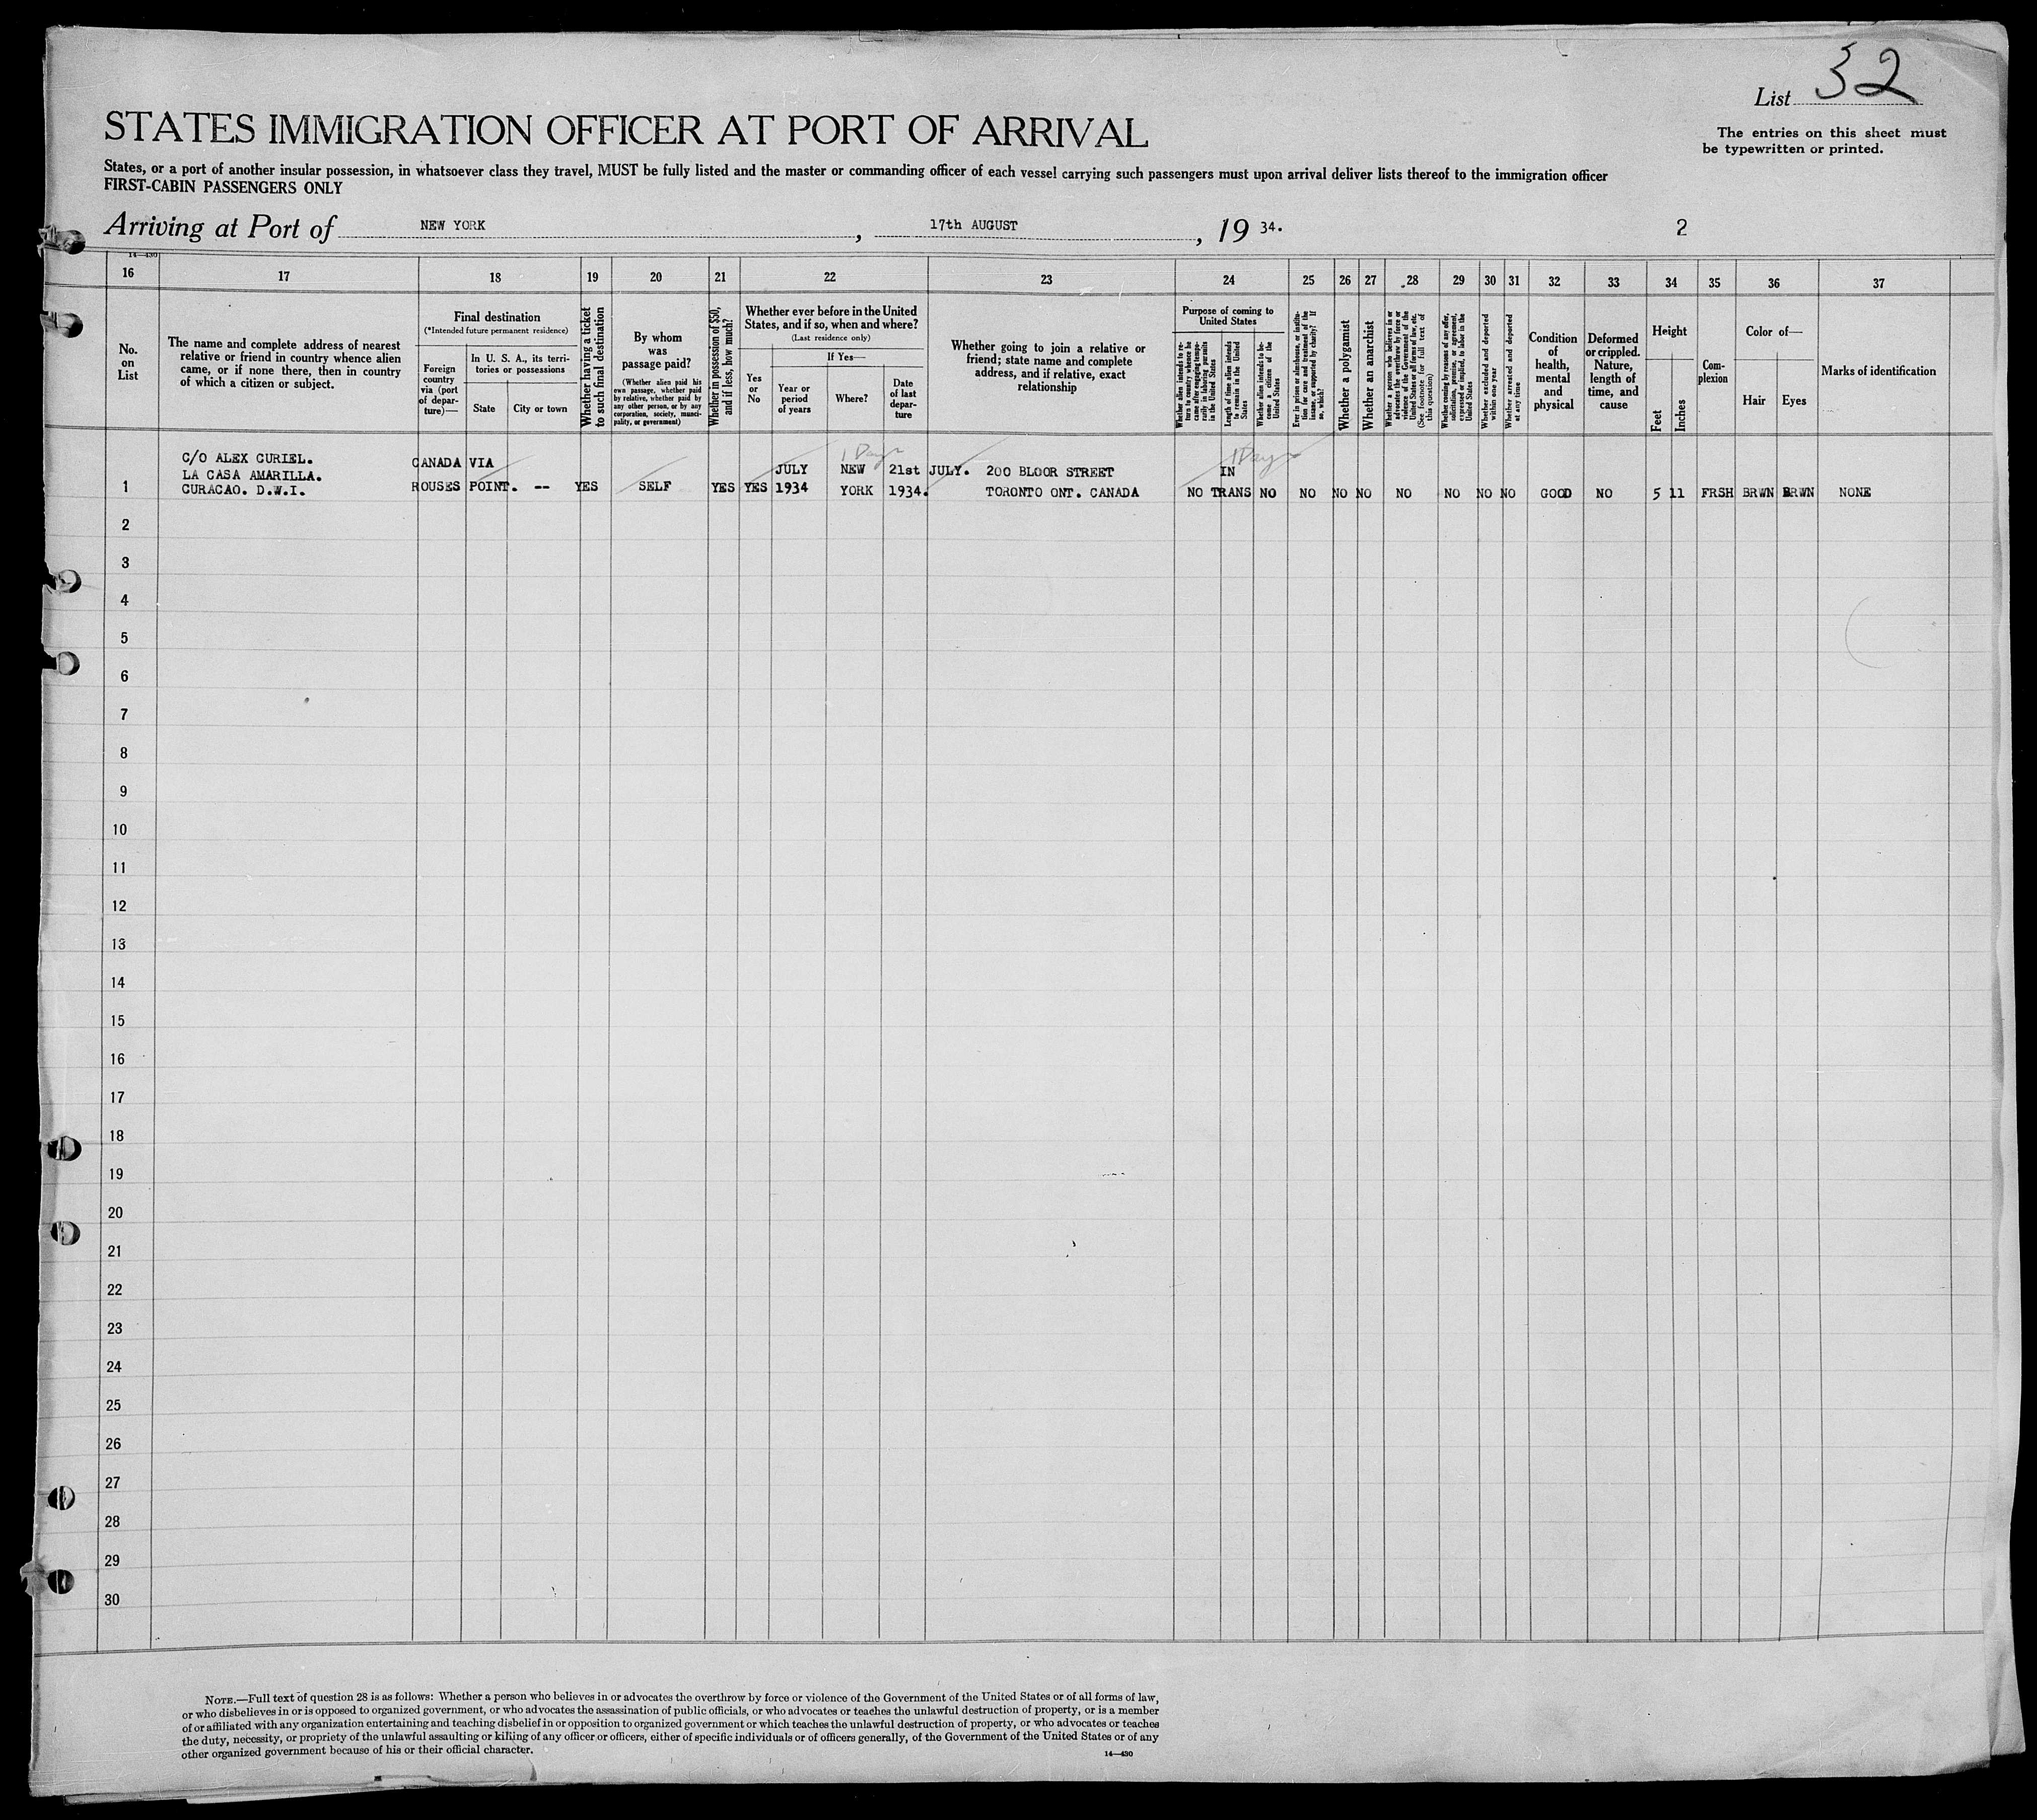 List 32
STATES IMMIGRATION OFFICER AT PORT OF ARRIVAL
The entries on this sheet must
be typewritten or printed.
States, or a port of another insular possession, in whatsoever class they travel, MUST be fully listed and the master or commanding officer of each vessel carrying such passengers must upon arrival deliver lists thereof to the immigration officer
FIRST-CABIN PASSENGERS ONLY
Arriving at Port of NEW YORK, 17th AUGUST, 19 34. 2
14—430
16 17 18 19 20 21 22 23 24 25 26 27 28 29 30 31 32 33 34 35 36 37
No.
on
List
The name and complete address of nearest
relative or friend in country whence alien
came, or if none there, then in country
of which a citizen or subject.
Final destination
(*Intended future permanent residence)
Foreign
country
via (port
of depar-
ture)—
In U. S. A., its terri-
tories or possessions
State
City or town
Whether having a ticket
to such final destination
By whom
was
passage paid?
(Whether alien paid his
own passage, whether paid
by relative, whether paid by
any other person, or by any
corporation, society, munici-
pality, or government)
Whether in possession of $50,
and if less, how much?
Whether ever before in the United
States, and if so, when and where?
(Last residence only)
Yes
or
No
If Yes—
Year or
period
of years
Where?
Date
of last
depar-
ture
Whether going to join a relative or
friend; state name and complete
address, and if relative, exact
relationship
Purpose of coming to
United States
Whether alien intends to re-
turn to country whence he
came after engaging tempo-
rarily in laboring pursuits
in the United States
Length of time alien intends
to remain in the United
States
Whether alien intends to be-
come a citizen of the
United States
Ever in prison or almshouse, or institu-
tion for care and treatment of the
insane, or supported by charity? If
so, which?
Whether a polygamist
Whether an anarchist
Whether a person who believes in or
advocates the overthrow by force or
violence of the Government of the
United States or all forms of law, etc.
(See footnote for full text of
this question)
Whether coming by reason of any offer,
solicitation, promise, or agreement,
expressed or implied, to labor in the
United States
Whether excluded and deported
within one year
Whether arrested and deported
at any time
Condition
of
health,
mental
and
physical
Deformed
or crippled.
Nature,
length of
time, and
cause
Height
Feet
Inches
Com-
plexion
Color of—
Hair
Eyes
Marks of identification
1 Day
1 Day
C/O ALEX CURIEL.
LA CASA AMARILLA.
CURACAO. D.W.I.
CANADA VIA
ROUSES POINT. --
YES
SELF
YES
YES
JULY
1934
NEW
YORK
21st JULY.
1934.
200 BLOOR STREET
TORONTO ONT. CANADA
NO
IN
TRANS
NO
NO
NO
NO
NO
NO
NO
NO
GOOD
NO
5
11
FRSH
BRWN
BRWN
NONE
1
2
3
4
5
6
7
8
9
10
11
12
13
14
15
16
17
18
19
20
21
22
23
24
25
26
27
28
29
30
NOTE.—Full text of question 28 is as follows: Whether a person who believes in or advocates the overthrow by force or violence of the Government of the United States or of all forms of law,
or who disbelieves in or is opposed to organized government, or who advocates the assassination of public officials, or who advocates or teaches the unlawful destruction of property, or is a member
of or affiliated with any organization entertaining and teaching disbelief in or opposition to organized government or which teaches the unlawful destruction of property, or who advocates or teaches
the duty, necessity, or propriety of the unlawful assaulting or killing of any officer or officers, either of specific individuals or of officers generally, of the Government of the United States or of any
other organized government because of his or their official character.
14—430